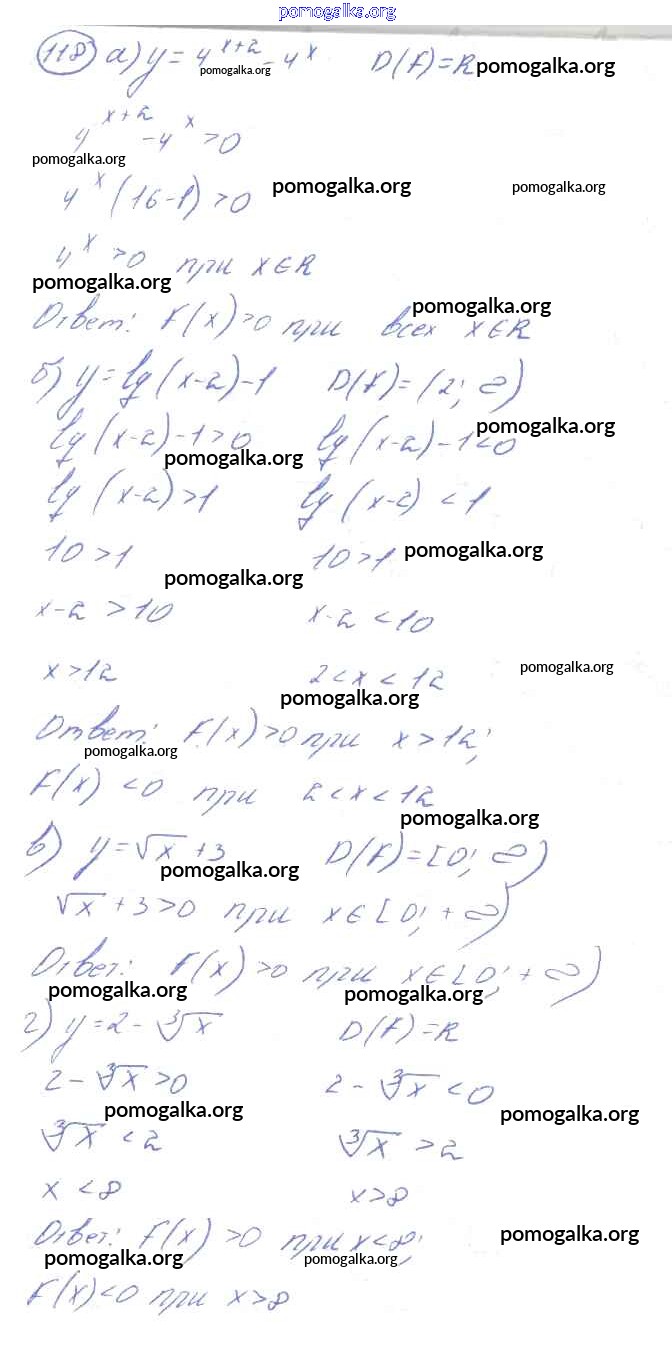 pomogalka.org
118 а) y = 4^(x+2) - 4^x D(f) = R pomogalka.org
pomogalka.org
4^(x+2) - 4^x > 0
pomogalka.org
4^x (16-1) > 0 pomogalka.org pomogalka.org
4^x > 0 при x ∈ R
pomogalka.org
pomogalka.org
Ответ: f(x) > 0 при всех x ∈ R
б) y = lg(x-2) - 1 D(f) = (2; ∞)
lg(x-2) - 1 > 0 lg(x-2) - 1 < 0 pomogalka.org
pomogalka.org
lg(x-2) > 1 lg(x-2) < 1
10 > 1 10 > 1 pomogalka.org
pomogalka.org
x-2 > 10 x-2 < 10
x > 12 2 < x < 12 pomogalka.org
pomogalka.org
Ответ: f(x) > 0 при x > 12;
pomogalka.org
f(x) < 0 при 2 < x < 12
pomogalka.org
в) y = √x + 3 D(f) = [0; ∞)
pomogalka.org
√x + 3 > 0 при x ∈ [0; +∞)
Ответ: f(x) > 0 при x ∈ [0; +∞)
pomogalka.org pomogalka.org
г) y = 2 - ∛x D(f) = R
2 - ∛x > 0 2 - ∛x < 0
pomogalka.org pomogalka.org
∛x < 2 ∛x > 2
x < 8 x > 8
Ответ: f(x) > 0 при x < 8; pomogalka.org
pomogalka.org pomogalka.org
f(x) < 0 при x > 8